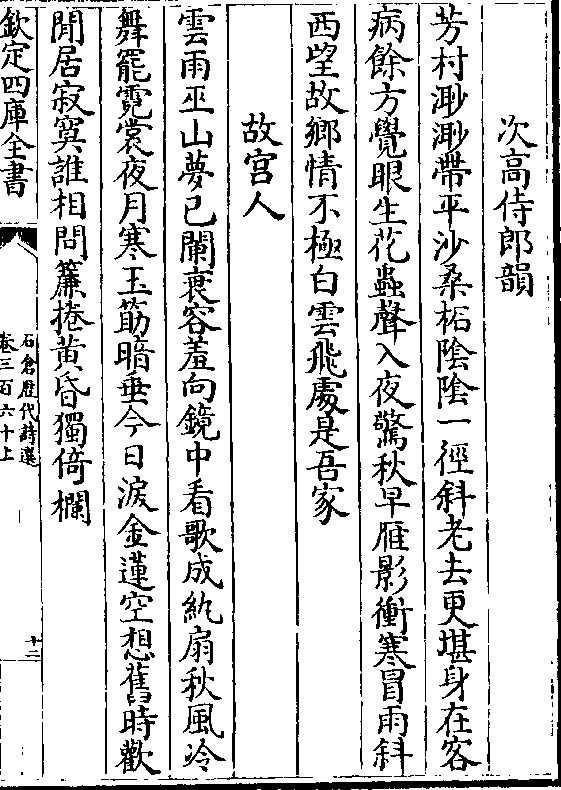 次高侍郎韻
芳村渺渺帶平沙桑柘陰陰一徑斜老去更堪身在客
病餘方覺眼生花蟲聲入夜驚秋早雁影衝寒冒雨斜
西望故鄉情不極白雲飛處是吾家
故宮人
雲雨巫山夢已闌衰容羞向鏡中看歌成紈扇秋風冷
舞罷霓裳夜月寒玉筯暗垂今日淚金蓮空想舊時歡
閒居寂寞誰相問簾捲黃昏獨倚欄
欽定四庫全書
石倉歷代詩選
卷三百六十上
十二